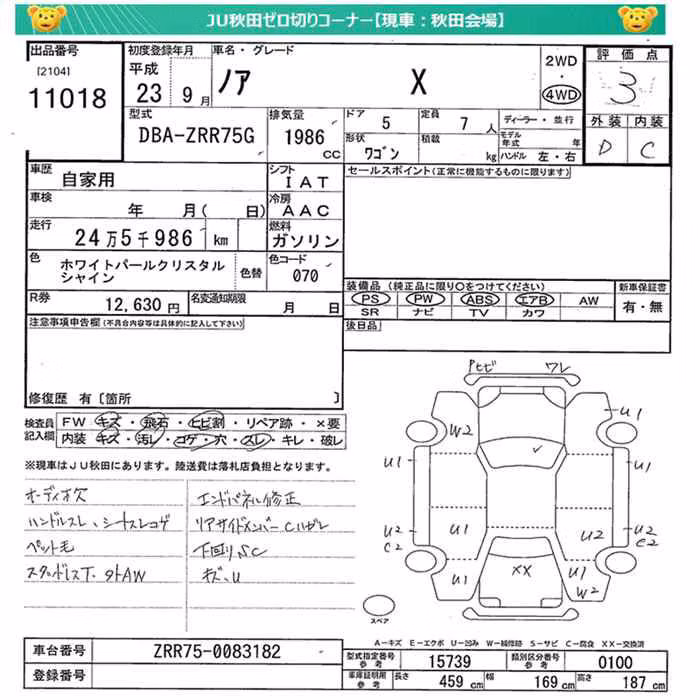 JU秋田ゼロ切りコーナー【現車：秋田会場】
出品番号
[2104]
11018
初度登録年月
平成
23 9月
車名・グレード
ノア X
2WD
・
4WD
評価点
3
外装 内装
D C
型式
DBA-ZRR75G
排気量
1986
CC
ドア 5
定員 7人
ディーラー・並行
形状
ワゴン
積載 kg
モデル
年式 年
ハンドル 左・右
車歴
自家用
シフト
IAT
セールスポイント(正常に機能するものに限ります)
車検
年 月( 日)
冷房
AAC
走行
24万5千986 km
燃料
ガソリン
色
ホワイトパールクリスタル
シャイン
色替
色コード
070
装備品 (純正品に限り○をつけてください)
PS PW ABS エアB AW
SR ナビ TV カワ
新車保証書
有・無
R券
12,630円
名変通知期限
月 日
後日品
注意事項申告欄(不具合内容等は具体的に記入して下さい)
修復歴 有〔箇所 〕
検査員
記入欄
FW キズ・飛石・ヒビ割・リペア跡・×要
内装 キズ・汚レ・コゲ・穴・スレ・キレ・破レ
※現車はJU秋田にあります。陸送費は落札店負担となります。
オーディオ欠
ハンドルスレ、シートスレコゲ
ペット毛
スタッドレスT. 外AW
エンドパネル修正
リアサイドメンバー C ハガレ
下回りSC
キズ、U
Pヒビ ワレ
W2
U1
U1
U1
U2
C2
U1
U2
U2
C2
U1
XX
U1
W2
スペア
A－キズ E－エクボ U－凹み W－補修跡 S－サビ C－腐食 XX－交換済
車台番号
ZRR75-0083182
登録番号
型式指定番号
参考
15739
類別区分番号
参考
0100
車庫証明用
参考
長さ
459 cm
幅
169 cm
高さ
187 cm